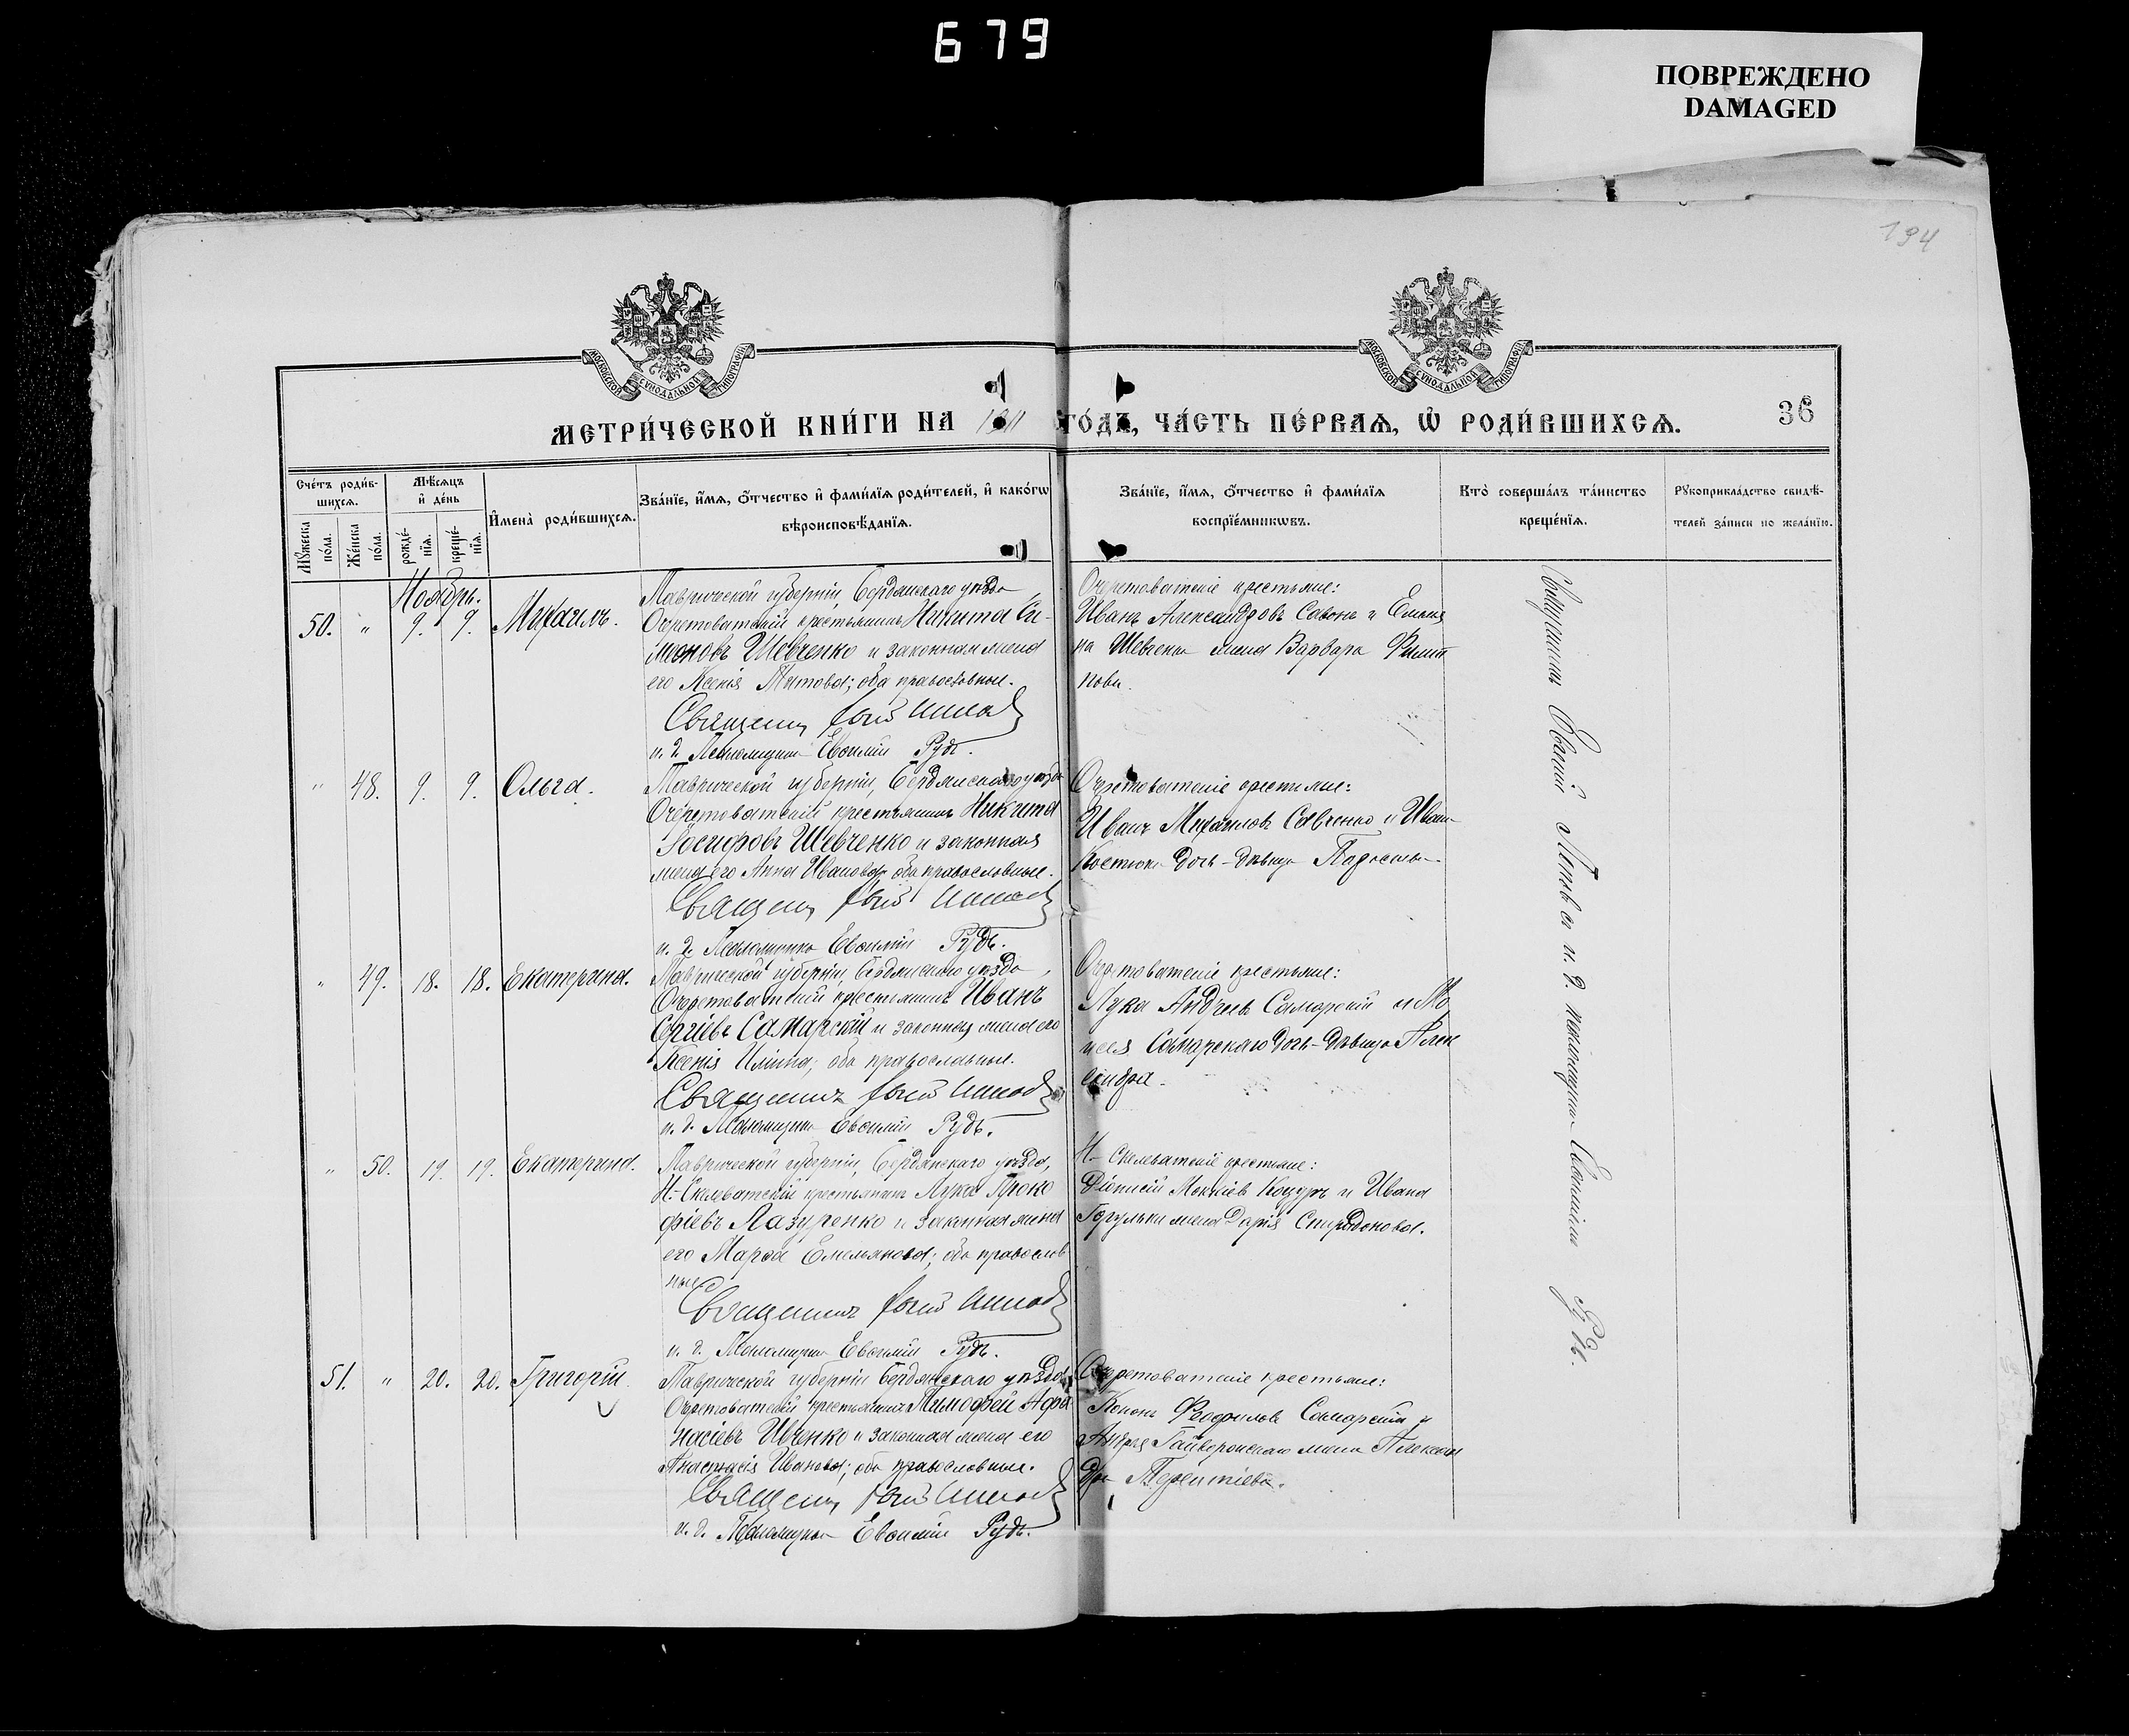 679
ПОВРЕЖДЕНО
DAMAGED
194
МОСКОВСКОЙ СѴНОДАЛЬНОЙ ТИПОГРАФІИ
МОСКОВСКОЙ СѴНОДАЛЬНОЙ ТИПОГРАФІИ
МЕТРИ́ЧЕСКОЙ КНИ́ГИ НА 1911 ГО́ДЪ, ЧА́СТЬ ПЕ́РВАѦ, Ѡ҆ РОДИ́ВШИХСѦ.
36
Сче́тъ роди́в-
шихсѧ.
Мѣ́сѧцъ
и҆ де́нь
Мꙋ́жеска
по́ла.
Же́нска
по́ла.
рожде́-
нїѧ.
креще́-
нїѧ.
И҆мена̀ роди́вшихсѧ.
Зва́нїе, и҆́мѧ, ѻ҆́тчество и҆ фами́лїѧ роди́телей, и҆ како́гѡ
вѣроисповѣ́данїѧ.
Зва́нїе, и҆́мѧ, ѻ҆́тчество и҆ фами́лїѧ
воспрїе́мникѡвъ.
Кто̀ соверша́лъ та́инство
креще́нїѧ.
Рꙋкоприкла́дство свидѣ́-
телей за́писи по жела́нїю.
Ноябрь.
50. " 9. 9. Михаилъ.
Таврической губерніи, Бердянскаго уѣзда,
Очеретоватскій крестьянинъ Никита Си-
меоновъ Шевченко и законная жена
его Ксенія Титова; оба православные.
Священникъ
и. д. Псаломщика Евфимій Рудь.
Очеретоватскіе крестьяне:
Иванъ Александровъ Савонъ и Емелья
на Шевченка жена Варвара Филип
пова.
" 48. 9. 9. Ольга.
Таврической губерніи, Бердянскаго уѣзда
Очеретоватскій крестьянинъ Никита
Іосифовъ Шевченко и законная
жена его Анна Иванова; оба православные.
Священникъ
и. д. Псаломщика Евфимій Рудь.
Очеретоватскіе крестьяне:
Иванъ Михаиловъ Савченко и Ивана
Костюка дочь-дѣвица
" 49. 18. 18. Екатерина.
Таврической губерніи, Бердянскаго уѣзда,
Очеретоватскій крестьянинъ Иванъ
Сергіевъ Самарскій и законная жена его
Ксенія Иліина; оба православные.
Священникъ
и. д. Псаломщика Евфимій Рудь.
Очеретоватскіе крестьяне:
Лука Андреевъ Самарскій и Мо
исея Самарскаго дочь-дѣвица Алек
сандра.
" 50. 19. 19. Екатерина.
Таврической губерніи, Бердянскаго уѣзда,
Н.-Скелеватскій крестьянинъ Лука Проко
фіевъ Лазуренко и законная жена
его Марфа Емельянова; оба православ
ные
Священникъ
и. д. Псаломщика Евфимій Рудь.
Н.-Скелеватскіе крестьяне:
Діонисій Мокіевъ Коцуръ и Ивана
Горульки жена Дарія Спиридонова.
51. " 20. 20. Григорій
Таврической губерніи Бердянскаго уѣзда,
Очеретоватскій крестьянинъ Тимофей Афа
насіевъ Ивченко и законная жена его
Анастасія Иванова; оба православные.
Священникъ
и. д. Псаломщика Евфимій Рудь.
Очеретоватскіе крестьяне:
Кононъ Феофиловъ Самарскій и
Андрея Гайворонскаго жена Алексан
дра Терентіева.
Священникъ и. д. псаломщика Евфимій Рудь.